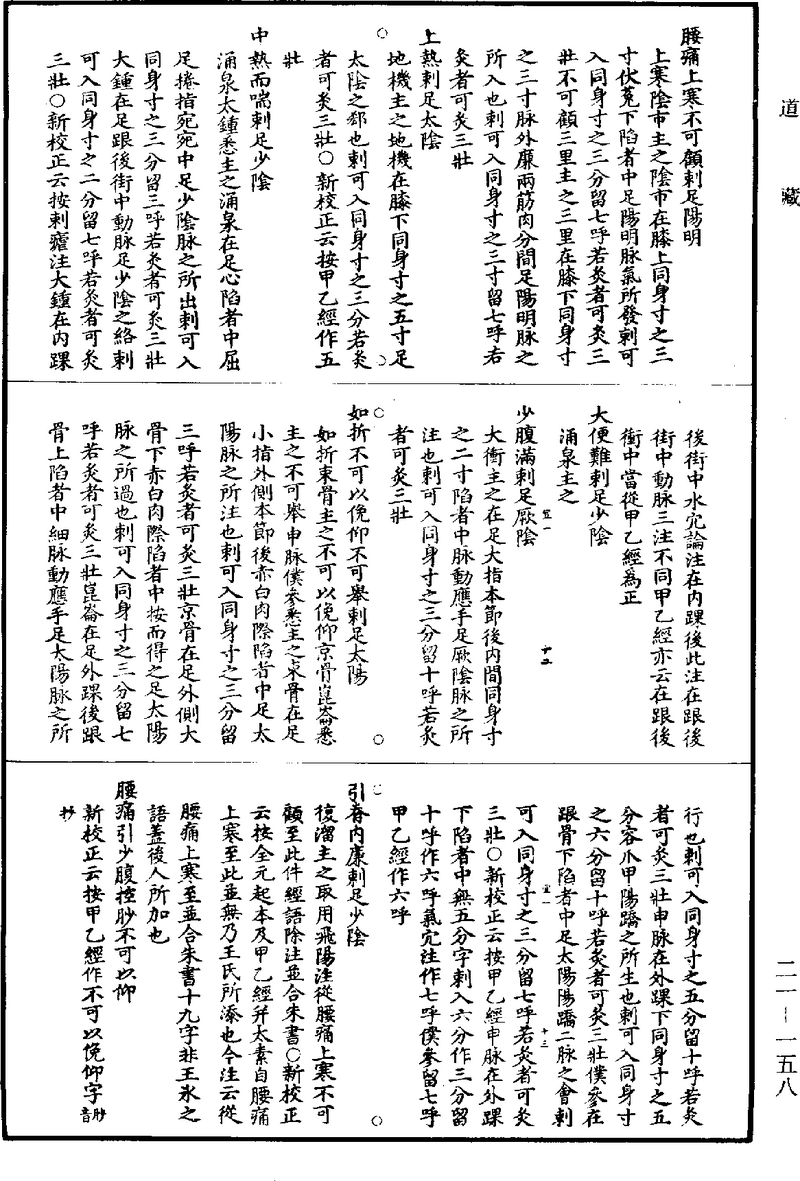 道藏
腰痛上寒不可顧刺足陽明
上寒陰市主之陰市在膝上同身寸之三
寸伏菟下陷者中足陽明脉氣所發刺可
入同身寸之三分留七呼若灸者可灸三
壯不可顧三里主之三里在膝下同身寸
之三寸脉外廉兩筋肉分間足陽明脉之
所入也刺可入同身寸之三寸留七呼若
灸者可灸三壯
上熱刺足太陰
地機主之地機在膝下同身寸之五寸足
太陰之郄也刺可入同身寸之三分若灸
者可灸三壯○新校正云按甲乙經作五
壯
中熱而喘刺足少陰
涌泉太鍾悉主之涌泉在足心陷者中屈
足捲指宛宛中足少陰脉之所出刺可入
同身寸之三分留三呼若灸者可灸三壯
大鍾在足跟後街中動脉足少陰之絡刺
可入同身寸之二分留七呼若灸者可灸
三壯○新校正云按刺瘧注大鍾在内踝
後街中水穴論注在内踝後此注在跟後
街中動脉三注不同甲乙經亦云在跟後
衝中當從甲乙經為正
大便難刺足少陰
涌泉主之
少腹滿刺足厥陰
大衝主之在足大指本節後内間同身寸
之二寸陷者中脉動應手足厥陰脉之所
注也刺可入同身寸之三分留十呼若灸
者可灸三壯
如折不可以俛仰不可舉刺足太陽
如折束骨主之不可以俛仰京骨崑崙悉
主之不可舉申脉僕參悉主之束骨在足
小指外側本節後赤白肉際陷者中足太
陽脉之所注也刺可入同身寸之三分留
三呼若灸者可灸三壯京骨在足外側大
骨下赤白肉際陷者中按而得之足太陽
脉之所過也刺可入同身寸之三分留七
呼若灸者可灸三壯崑崙在足外踝後跟
骨上陷者中細脉動應手足太陽脉之所
行也刺可入同身寸之五分留十呼若灸
者可灸三壯申脉在外踝下同身寸之五
分容爪甲陽蹻之所生也刺可入同身寸
之六分留十呼若灸者可灸三壯僕參在
跟骨下陷者中足太陽陽蹻二脉之會刺
可入同身寸之三分留七呼若灸者可灸
三壯○新校正云按甲乙經申脉在外踝
下陷者中無五分字刺入六分作三分留
十呼作六呼氣穴注作七呼僕參留七呼
甲乙經作六呼
引脊内廉刺足少陰
復溜主之取用飛陽注從腰痛上寒不可
顧至此件經語除注並合朱書○新校正
云按全元起本及甲乙經并太素自腰痛
上寒至此並無乃王氏所添也今注云從
腰痛上寒至並合朱書十九字非王氷之
語蓋後人所加也
腰痛引少腹控䏚不可以仰
新校正云按甲乙經作不可以俛仰字䏚音
抄
二一—一五八